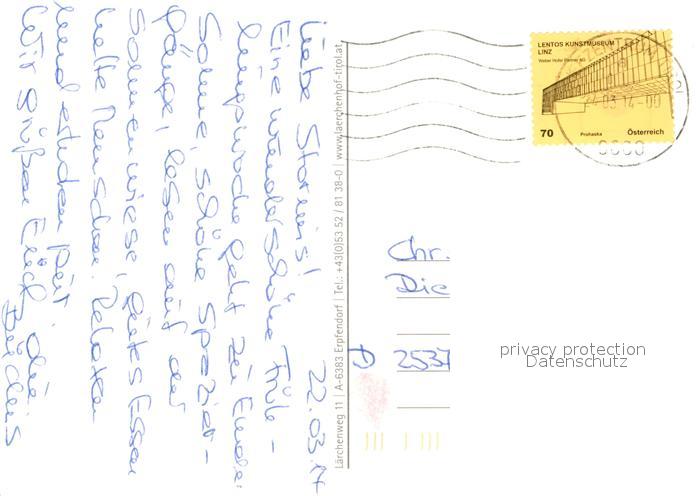 22.03.14
Liebe Storms!
Eine wunderschöne Früh-
lingswoche geht zu Ende.
Sonne, schöne Spazier-
gänge, lesen auf der
Sonnenwiese! Gutes Essen
nette Menschen. Relaxen
und
Wir grüßen Euch
Lärchenweg 11 | A-6383 Erpfendorf | Tel.: +43(0)53 52 / 81 38-0 | www.laerchenhof-tirol.at
LENTOS KUNSTMUSEUM
LINZ
Weber Hofer Partner AG
70 Prohaska Österreich
03.14-00
Chr.
Die
D 2537
privacy protection
Datenschutz